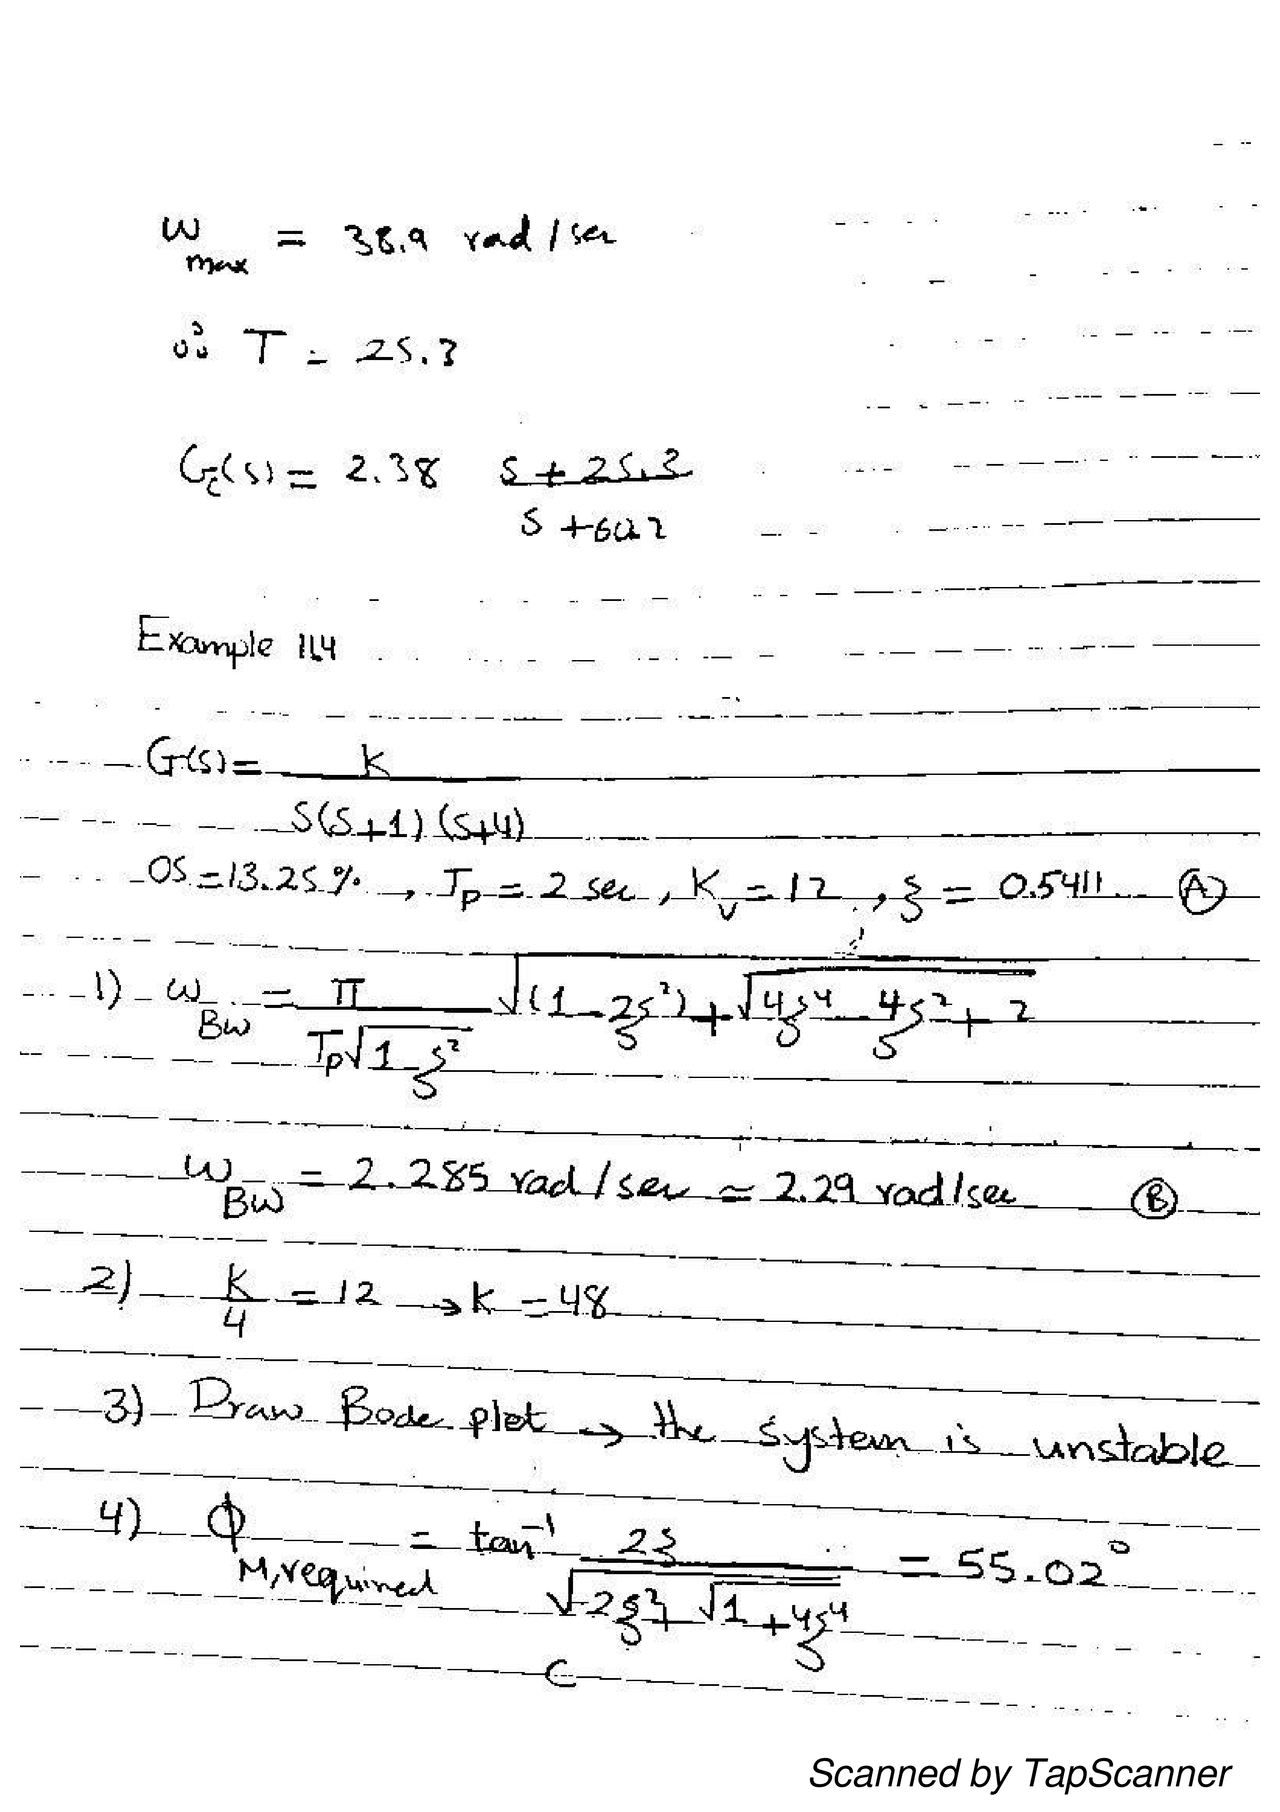 ω_max = 38.9 rad/sec
∴ T = 25.3
G_c(s) = 2.38 (s + 25.3)/(s + 60.2)
Example 11.4
G(s) = K/(S(S+1)(S+4))
OS = 13.25 % , T_p = 2 sec , K_v = 12 , ξ = 0.5411 Ⓐ
1) ω_BW = π/(T_p√(1-ξ²)) √((1-2ξ²) + √(4ξ⁴ - 4ξ² + 2))
ω_BW = 2.285 rad/sec ≃ 2.29 rad/sec Ⓑ
2) K/4 = 12 → K = 48
3) Draw Bode plot → the system is unstable
4) Φ_M,required = tan⁻¹ 2ξ/√(-2ξ² + √(1 + 4ξ⁴)) = 55.02°
C
Scanned by TapScanner